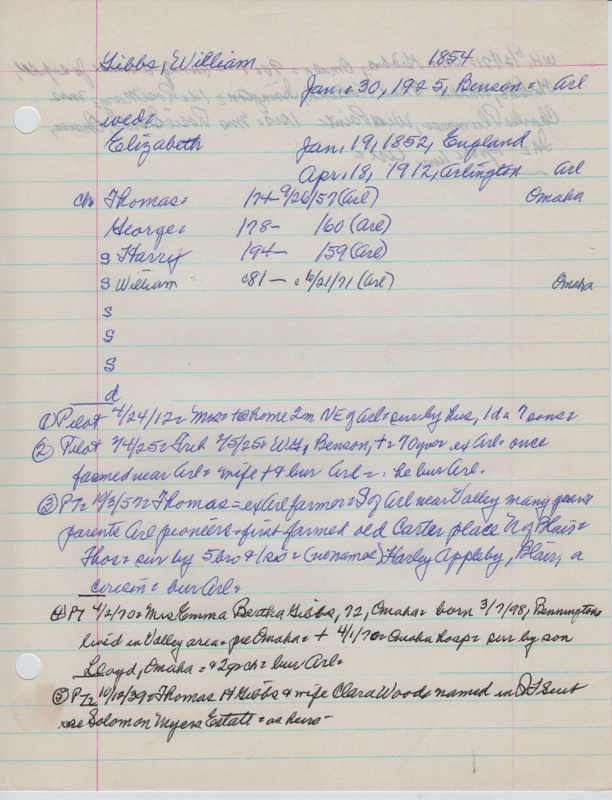 Gibbs, William 1854
Jan. 30, 1925, Benson = Arl
wed=
Elizabeth Jan. 19, 1852, England
Apr. 18, 1912, Arlington Arl
ch Thomas= 174- 9/26/57 (Arl) Omaha
George= 178- 160 (Arl)
s Harry 194- 159 (Arl)
s William 81- 6/21/71 (Arl) Omaha
s
s
s
d
① Pilot 4/24/12= Mrs= + @ home 2m NE of Arl= sur by hus, 1 d = 7 sons=
② Pilot 2/5/25= W, Benson, += 70 yrs= ex Arl= once
farmed near Arl= wife + & bur Arl=. he bur Arl.
③ PT= 10/3/57= Thomas= ex Arl farmer= S of Arl near Valley many years
parents Arl pioneers= first farmed old Carter place N of Blair=
Thos= sur by 5 bro & 1 sis= (no name) Harley Appleby, Blair, a
cousin= bur Arl=
④ PT 4/2/70= Mrs Emma Bertha Gibbs, 72, Omaha= born 3/7/98, Bennington
lived in Valley area= pre Omaha= + 4/1/70= Omaha hosp= sur by son
Lloyd, Omaha= & 2 grch= bur Arl=
⑤ PT= 10/12/39= Thomas H Gibbs & wife Clara Woods named in Suit
re Solomon Myers Estate= as heirs-